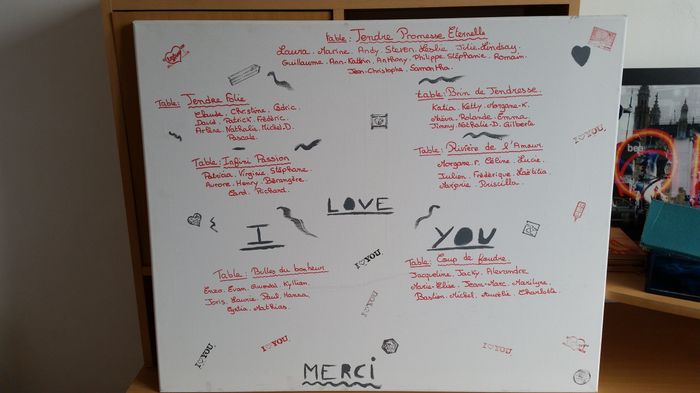 Table: Tendre Promesse Éternelle
Laura. Marine. Andy. Steven. Leslie. Julie. Lindsay.
Guillaume. Ann-Kathrin. Anthony. Philippe. Stéphanie. Romain.
Jean-Christophe. Samantha.
Table: Tendre Folie
Claude. Christine. Cédric.
David. Patrick. Frédéric.
Arlène. Nathalie. Mickel.D.
Pascale.
Table: Brin de Tendresse.
Katia. Ketty. Morgane-K.
Méva. Rolande. Emma.
Jimmy. Nathalie-D. Gilberte
I ♡ YOU
Table: Infini Passion
Patricia. Virginie. Stéphane.
Aurore. Henry. Bérangère.
Carol. Richard.
Table: Rivière de l'Amour.
Morgane.F. Céline. Lucie.
Julien. Frédérique. Laëtitia.
Marjorie. Priscilla.
I LOVE YOU
Table: Bulles du bonheur
Enzo. Evan. Gwendal. Kyllian.
Joris. Laurie. Paul. Hanna.
Lydia. Mathias.
Table: Coup de foudre.
Jacqueline. Jacky. Alexandre
Marie-Elise. Jean-Marc. Marilyne.
Bastien. Mickel. Aurélie. Charlotte.
I ♡ YOU
I ♡ YOU
I ♡ YOU
I ♡ YOU
I ♡ YOU
MERCi